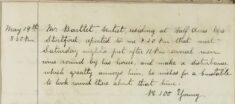 May 19th Mr Bartlett Dentist, residing at
8.50 Pm Stratford reported to me 8.50 Pm that most
Saturday nights just after 11 Pm several men
run round by his house, and make a disturbance
which greatly annoys him, he wishes for a Constable
to look round there about that time.
Pc 100 Young